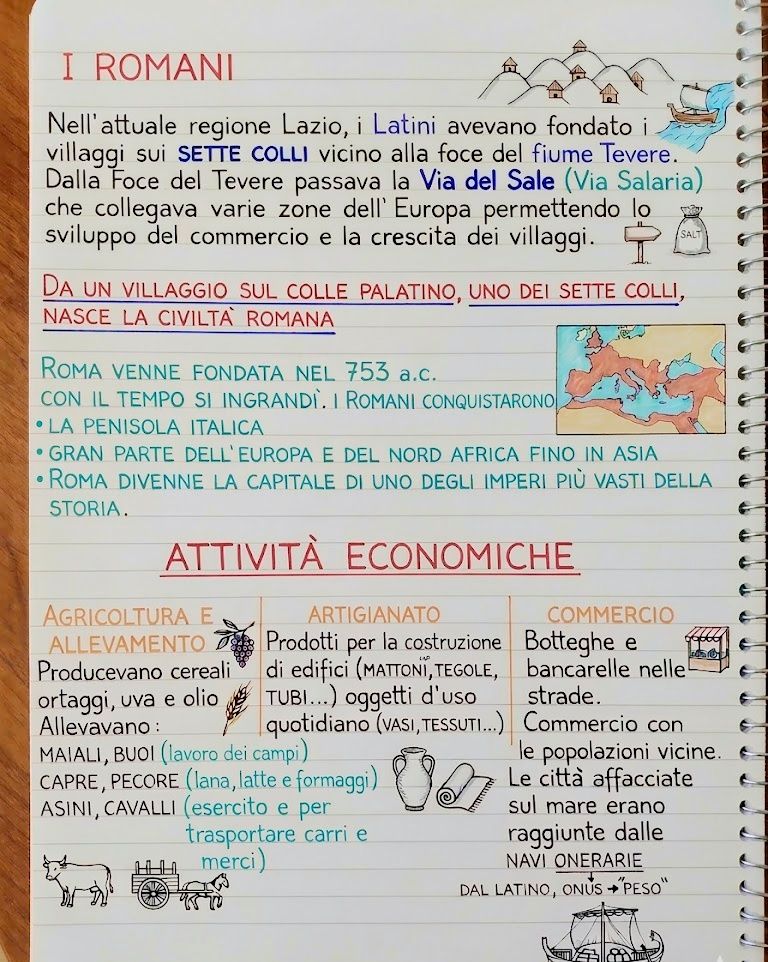 I ROMANI
Nell'attuale regione Lazio, i Latini avevano fondato i
villaggi sui SETTE COLLI vicino alla foce del fiume Tevere.
Dalla Foce del Tevere passava la Via del Sale (Via Salaria)
che collegava varie zone dell'Europa permettendo lo
sviluppo del commercio e la crescita dei villaggi.
SALT
DA UN VILLAGGIO SUL COLLE PALATINO, UNO DEI SETTE COLLI,
NASCE LA CIVILTÀ ROMANA
ROMA VENNE FONDATA NEL 753 a.c.
CON IL TEMPO SI INGRANDÌ. I ROMANI CONQUISTARONO
• LA PENISOLA ITALICA
• GRAN PARTE DELL'EUROPA E DEL NORD AFRICA FINO IN ASIA
• ROMA DIVENNE LA CAPITALE DI UNO DEGLI IMPERI PIÙ VASTI DELLA
STORIA.
ATTIVITÀ ECONOMICHE
AGRICOLTURA E
ALLEVAMENTO
Producevano cereali
ortaggi, uva e olio
Allevavano:
MAIALI, BUOI (lavoro dei campi)
CAPRE, PECORE (lana, latte e formaggi)
ASINI, CAVALLI (esercito e per
trasportare carri e
merci)
ARTIGIANATO
Prodotti per la costruzione
di edifici (MATTONI, TEGOLE,
TUBI...) oggetti d'uso
quotidiano (VASI, TESSUTI...)
COMMERCIO
Botteghe e
bancarelle nelle
strade.
Commercio con
le popolazioni vicine.
Le città affacciate
sul mare erano
raggiunte dalle
NAVI ONERARIE
DAL LATINO, ONUS → "PESO"